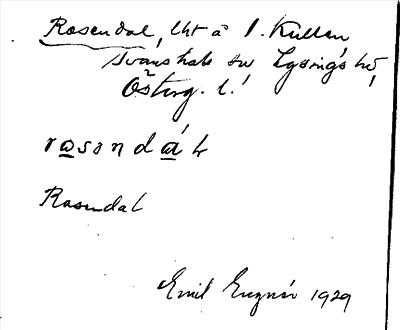 Rosendal, lht å S. Kullen
Svanshals sn Lysings hd,
Österg. l.
rosendal
Rosendal
Emil 1929